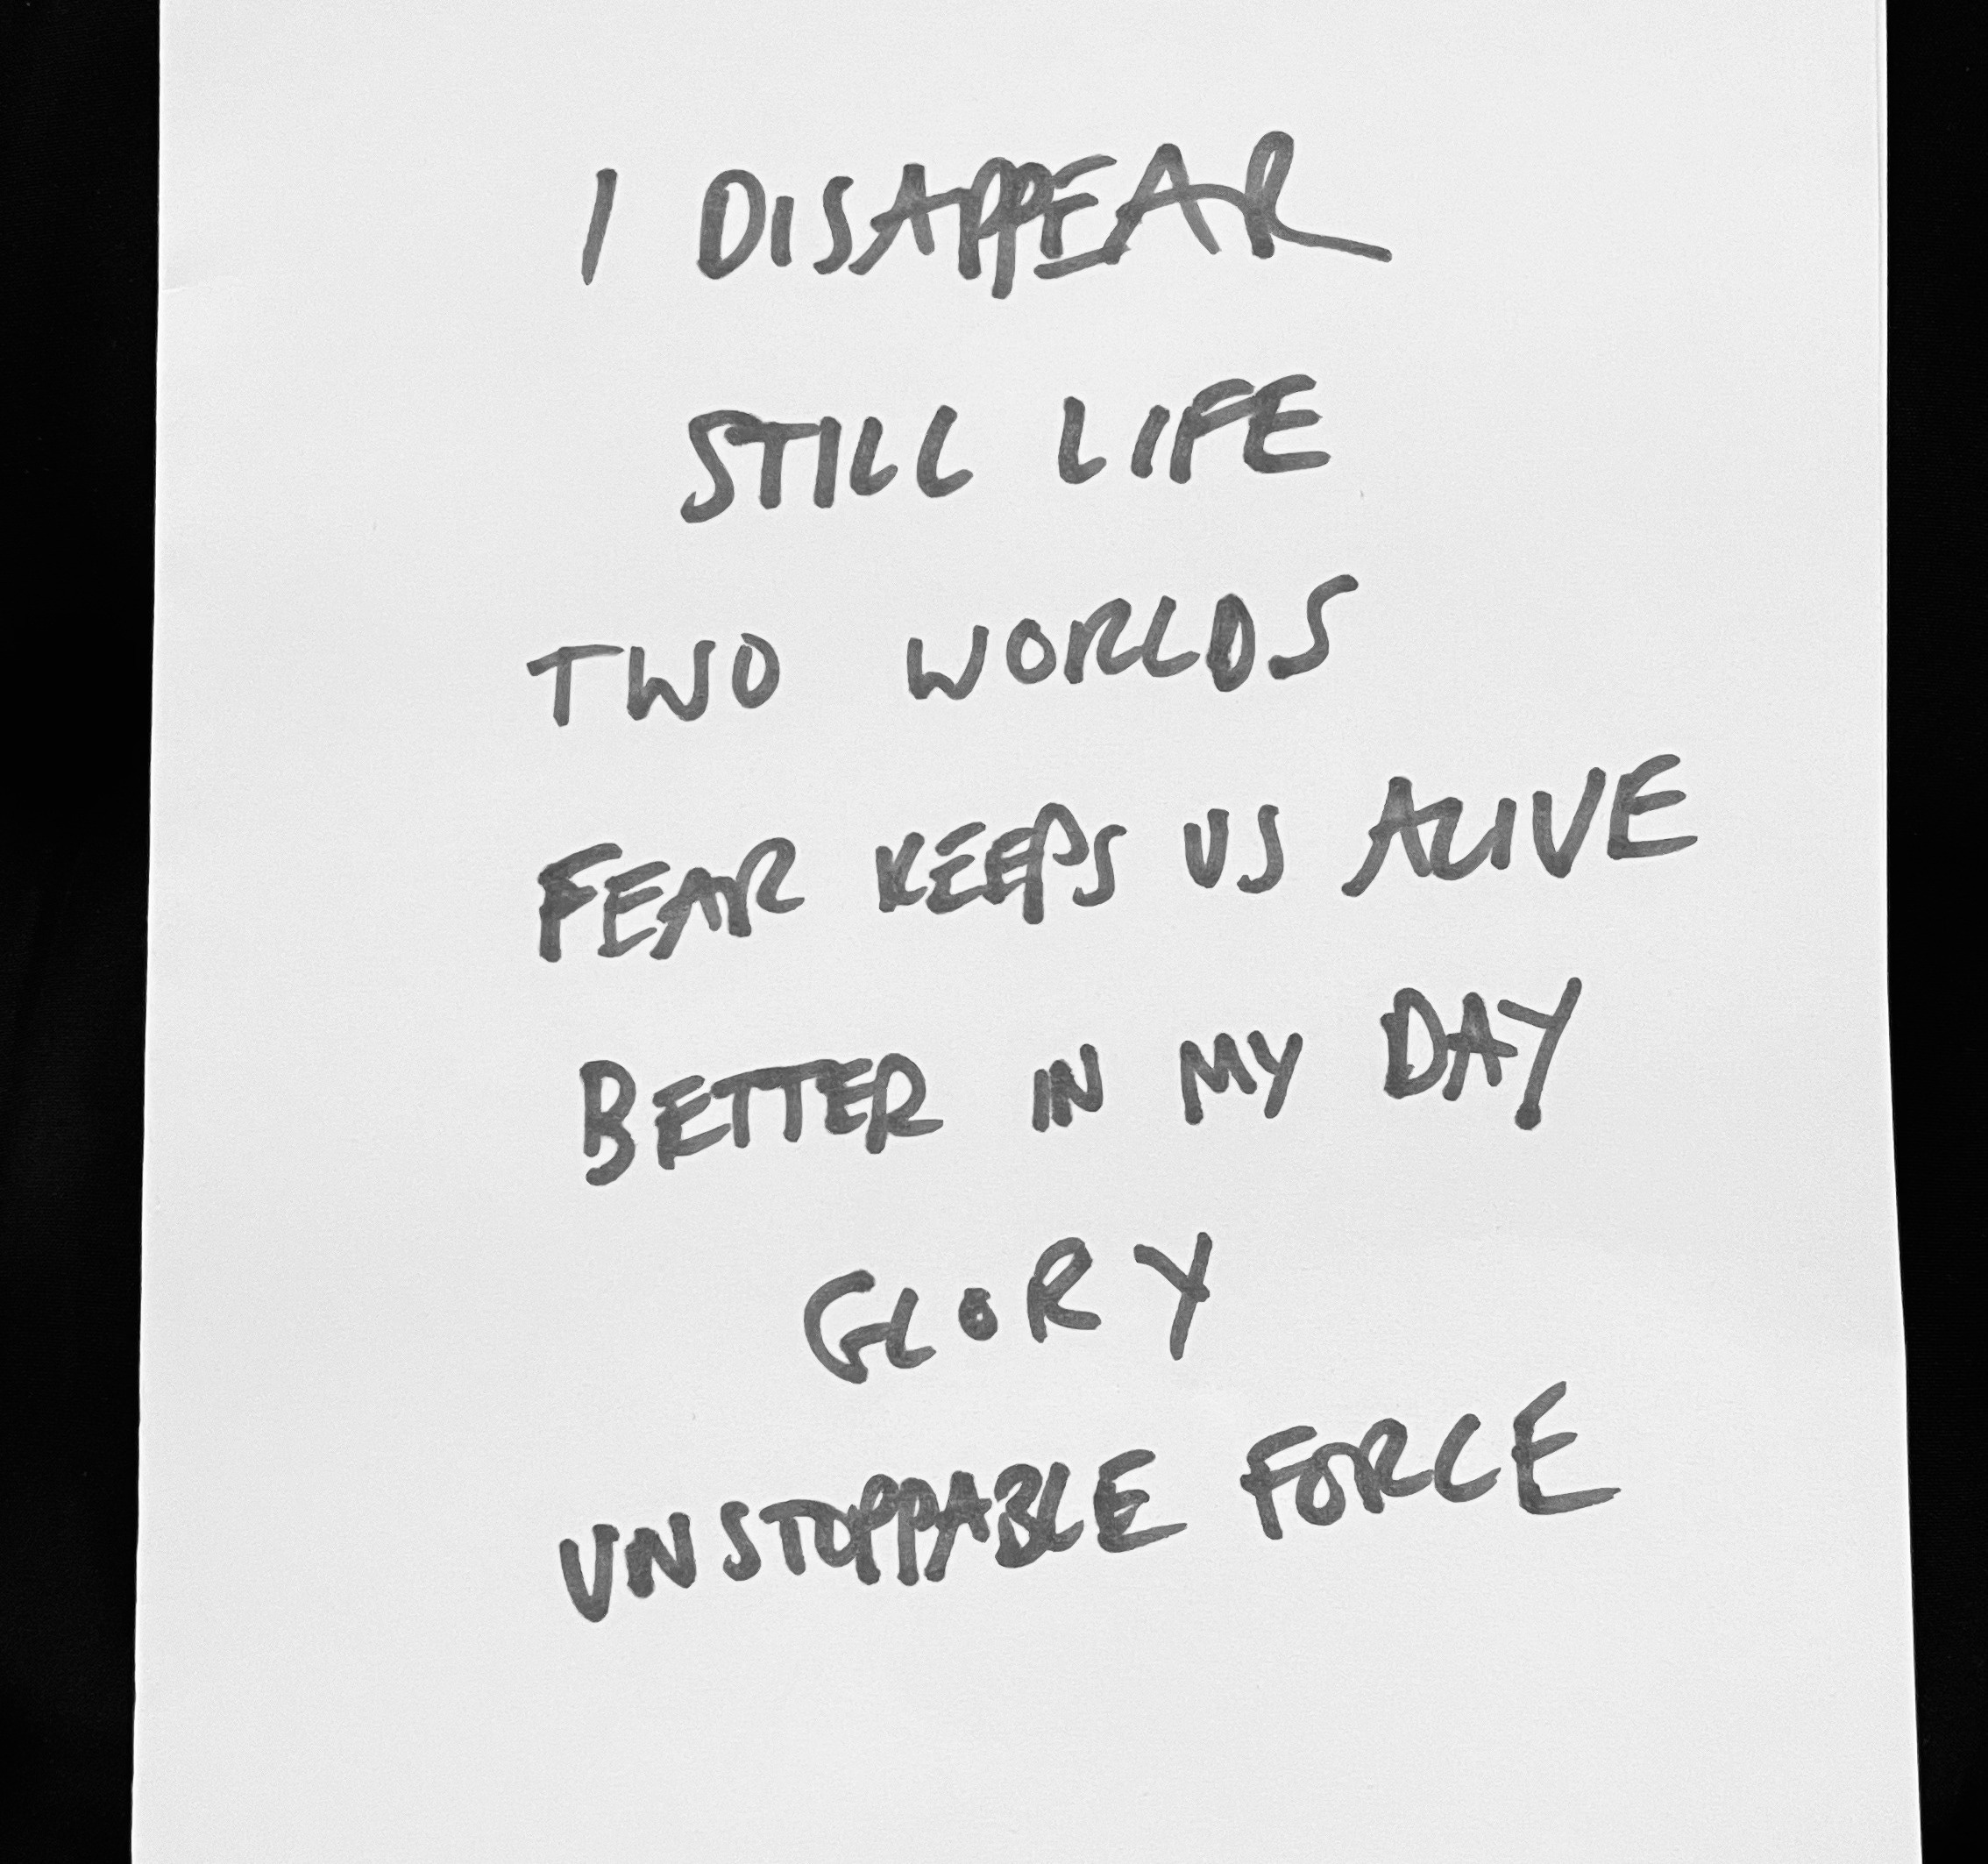 I DISAPPEAR
STILL LIFE
TWO WORLDS
FEAR KEEPS US ALIVE
BETTER IN MY DAY
GLORY
UNSTOPPABLE FORCE